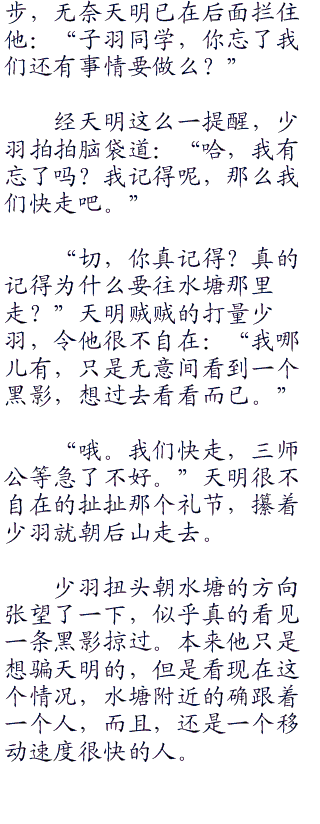 步，无奈天明已在后面拦住
他：“子羽同学，你忘了我
们还有事情要做么？”
经天明这么一提醒，少
羽拍拍脑袋道：“哈，我有
忘了吗？我记得呢，那么我
们快走吧。”
“切，你真记得？真的
记得为什么要往水塘那里
走？”天明贼贼的打量少
羽，令他很不自在：“我哪
儿有，只是无意间看到一个
黑影，想过去看看而已。”
“哦。我们快走，三师
公等急了不好。”天明很不
自在的扯扯那个礼节，攥着
少羽就朝后山走去。
少羽扭头朝水塘的方向
张望了一下，似乎真的看见
一条黑影掠过。本来他只是
想骗天明的，但是看现在这
个情况，水塘附近的确跟着
一个人，而且，还是一个移
动速度很快的人。